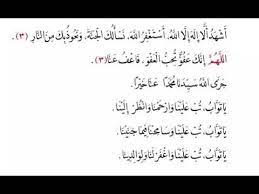 أَشْهَدُ أَنْ لَا إِلَهَ إِلَّا اللَّهُ، أَسْتَغْفِرُ اللَّهَ، نَسْأَلُكَ الْجَنَّةَ، وَنَعُوذُ بِكَ مِنَ النَّارِ (٣)
اللَّهُمَّ إِنَّكَ عَفُوٌّ تُحِبُّ الْعَفْوَ، فَاعْفُ عَنَّا (٣).
جَزَى اللَّهُ سَيِّدَنَا مُحَمَّدًا عَنَّا خَيْرًا.
يَا تَوَّابُ، تُبْ عَلَيْنَا وَارْحَمْنَا وَانْظُرْ إِلَيْنَا.
يَا تَوَّابُ، تُبْ عَلَيْنَا وَسَامِحْنَا فِيمَا جَنَيْنَا.
يَا تَوَّابُ، تُبْ عَلَيْنَا وَاغْفِرْ لَنَا وَلِوَالِدِينَا.